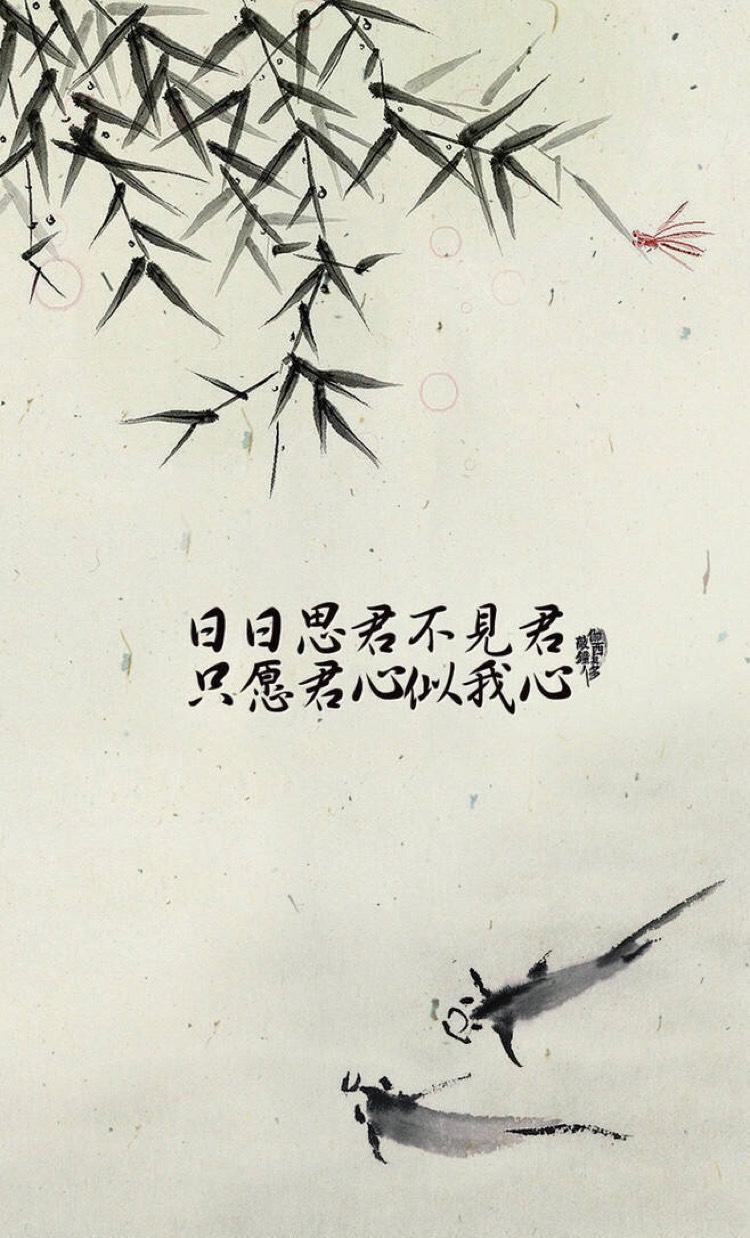 日日思君不见君
只愿君心似我心